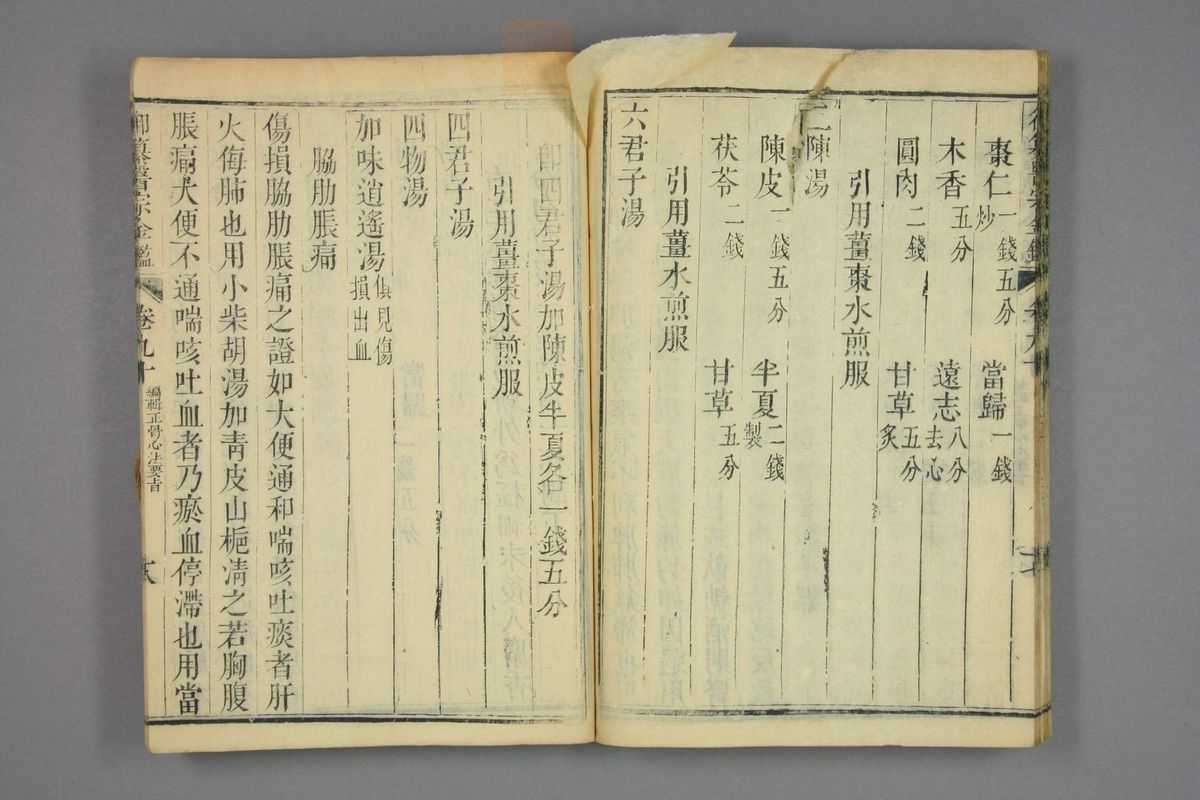 棗仁炒一錢五分　當歸一錢
木香五分　遠志去心八分
圓肉二錢　甘草炙五分
引用薑棗水煎服
二陳湯
陳皮一錢五分　半夏製二錢
茯苓二錢　甘草五分
引用薑水煎服
六君子湯
即四君子湯加陳皮半夏各一錢五分
引用薑棗水煎服
四君子湯
四物湯
加味逍遙湯俱見傷損出血
脇肋脹痛
傷損脇肋脹痛之證如大便通和喘咳吐痰者肝
火侮肺也用小柴胡湯加青皮山梔清之若胸腹
脹痛大便不通喘咳吐血者乃瘀血停滯也用當
御纂醫宗金鑑　卷九十　編輯正骨心法要旨